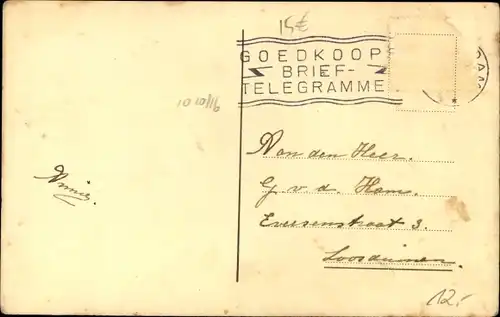 15€
GOEDKOOPE
BRIEF-
TELEGRAMMEN
DAM
10 10/16
Aan den Heer.
G. v. d. Ham.
Eversenstraat 3.
Loosduinen.
Annie.
12,-